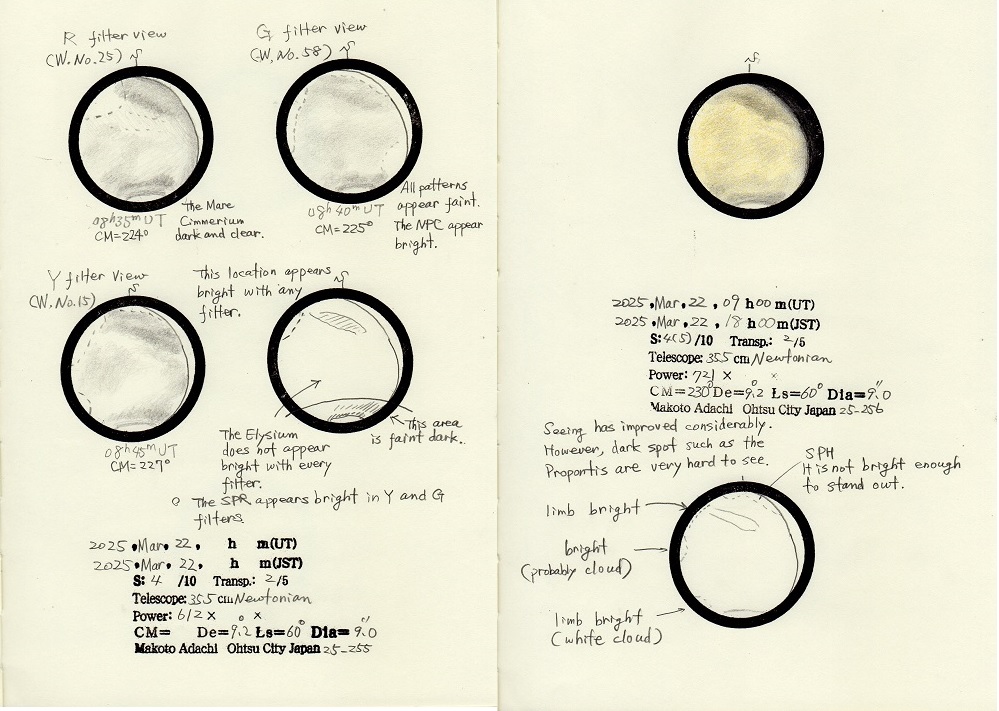 R filter view
(W. No. 25)
08h35m UT
CM=224°
The Mare
Cimmerium
dark and clear.
G filter view
(W, No. 58)
08h 40m UT
CM=225°
All patterns
appear faint.
The NPC appear
bright.
Y filter View
(W. No. 15)
08h45m UT
CM=227°
This location appears
bright with any
filter.
The Elysium
does not appear
bright with every
filter.
This area
is faint dark.
The SPR appears bright in Y and G
filters.
2025 . Mar. 22 . h m(UT)
2025 . Mar. 22 . h m(JST)
S: 4 /10 Transp.: 2/5
Telescope: 35.5 cm Newtonian
Power: 612 × ×
CM= De=9.2 Ls=60° Dia=9".0
Makoto Adachi Ohtsu City Japan 25-255
2025 . Mar. 22 , 09 h 00 m(UT)
2025 . Mar. 22 , 18 h 00 m(JST)
S: 4(5) /10 Transp.: 2/5
Telescope: 35.5 cm Newtonian
Power: 721 × ×
CM=230° De=9.2 Ls=60° Dia=9".0
Makoto Adachi Ohtsu City Japan 25-256
Seeing has improved considerably.
However, dark spot such as the
Propontis are very hard to see.
SPH
It is not bright enough
to stand out.
limb bright
bright
(probably cloud)
limb bright
(white cloud)